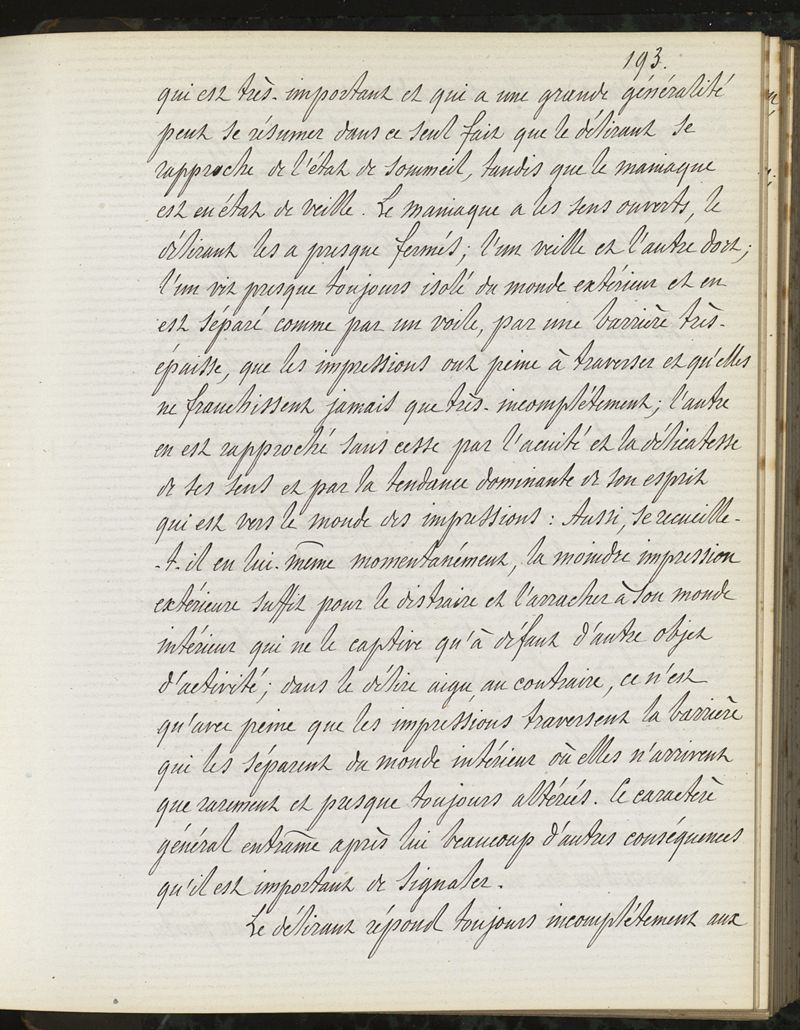 193.
qui est très-important et qui a une grande généralité
peut se résumer dans ce seul fait que le délirant se
rapproche de l'état de sommeil, tandis que le maniaque
est en état de veille. Le maniaque a les sens ouverts, le
délirant les a presque fermés; l'un veille et l'autre dort;
l'un vit presque toujours isolé du monde extérieur et en
est séparé comme par un voile, par une barrière très-
épaisse, que les impressions ont peine à traverser et qu'elles
ne franchissent jamais que très-incomplétement; l'autre
en est rapproché sans cesse par l'acuité et la délicatesse
de ses sens et par la tendance dominante de son esprit
qui est vers le monde des impressions : Aussi, se recueille-
-t-il en lui-même momentanément, la moindre impression
extérieure suffit pour le distraire et l'arracher à son monde
intérieur qui ne le captive qu'à défaut d'autre objet
d'activité; dans le délire aigu, au contraire, ce n'est
qu'avec peine que les impressions traversent la barrière
qui les séparent du monde intérieur où elles n'arrivent
que rarement et presque toujours altérées. Ce caractère
général entraîne après lui beaucoup d'autres conséquences
qu'il est important de signaler.
Le délirant répond toujours incomplétement aux